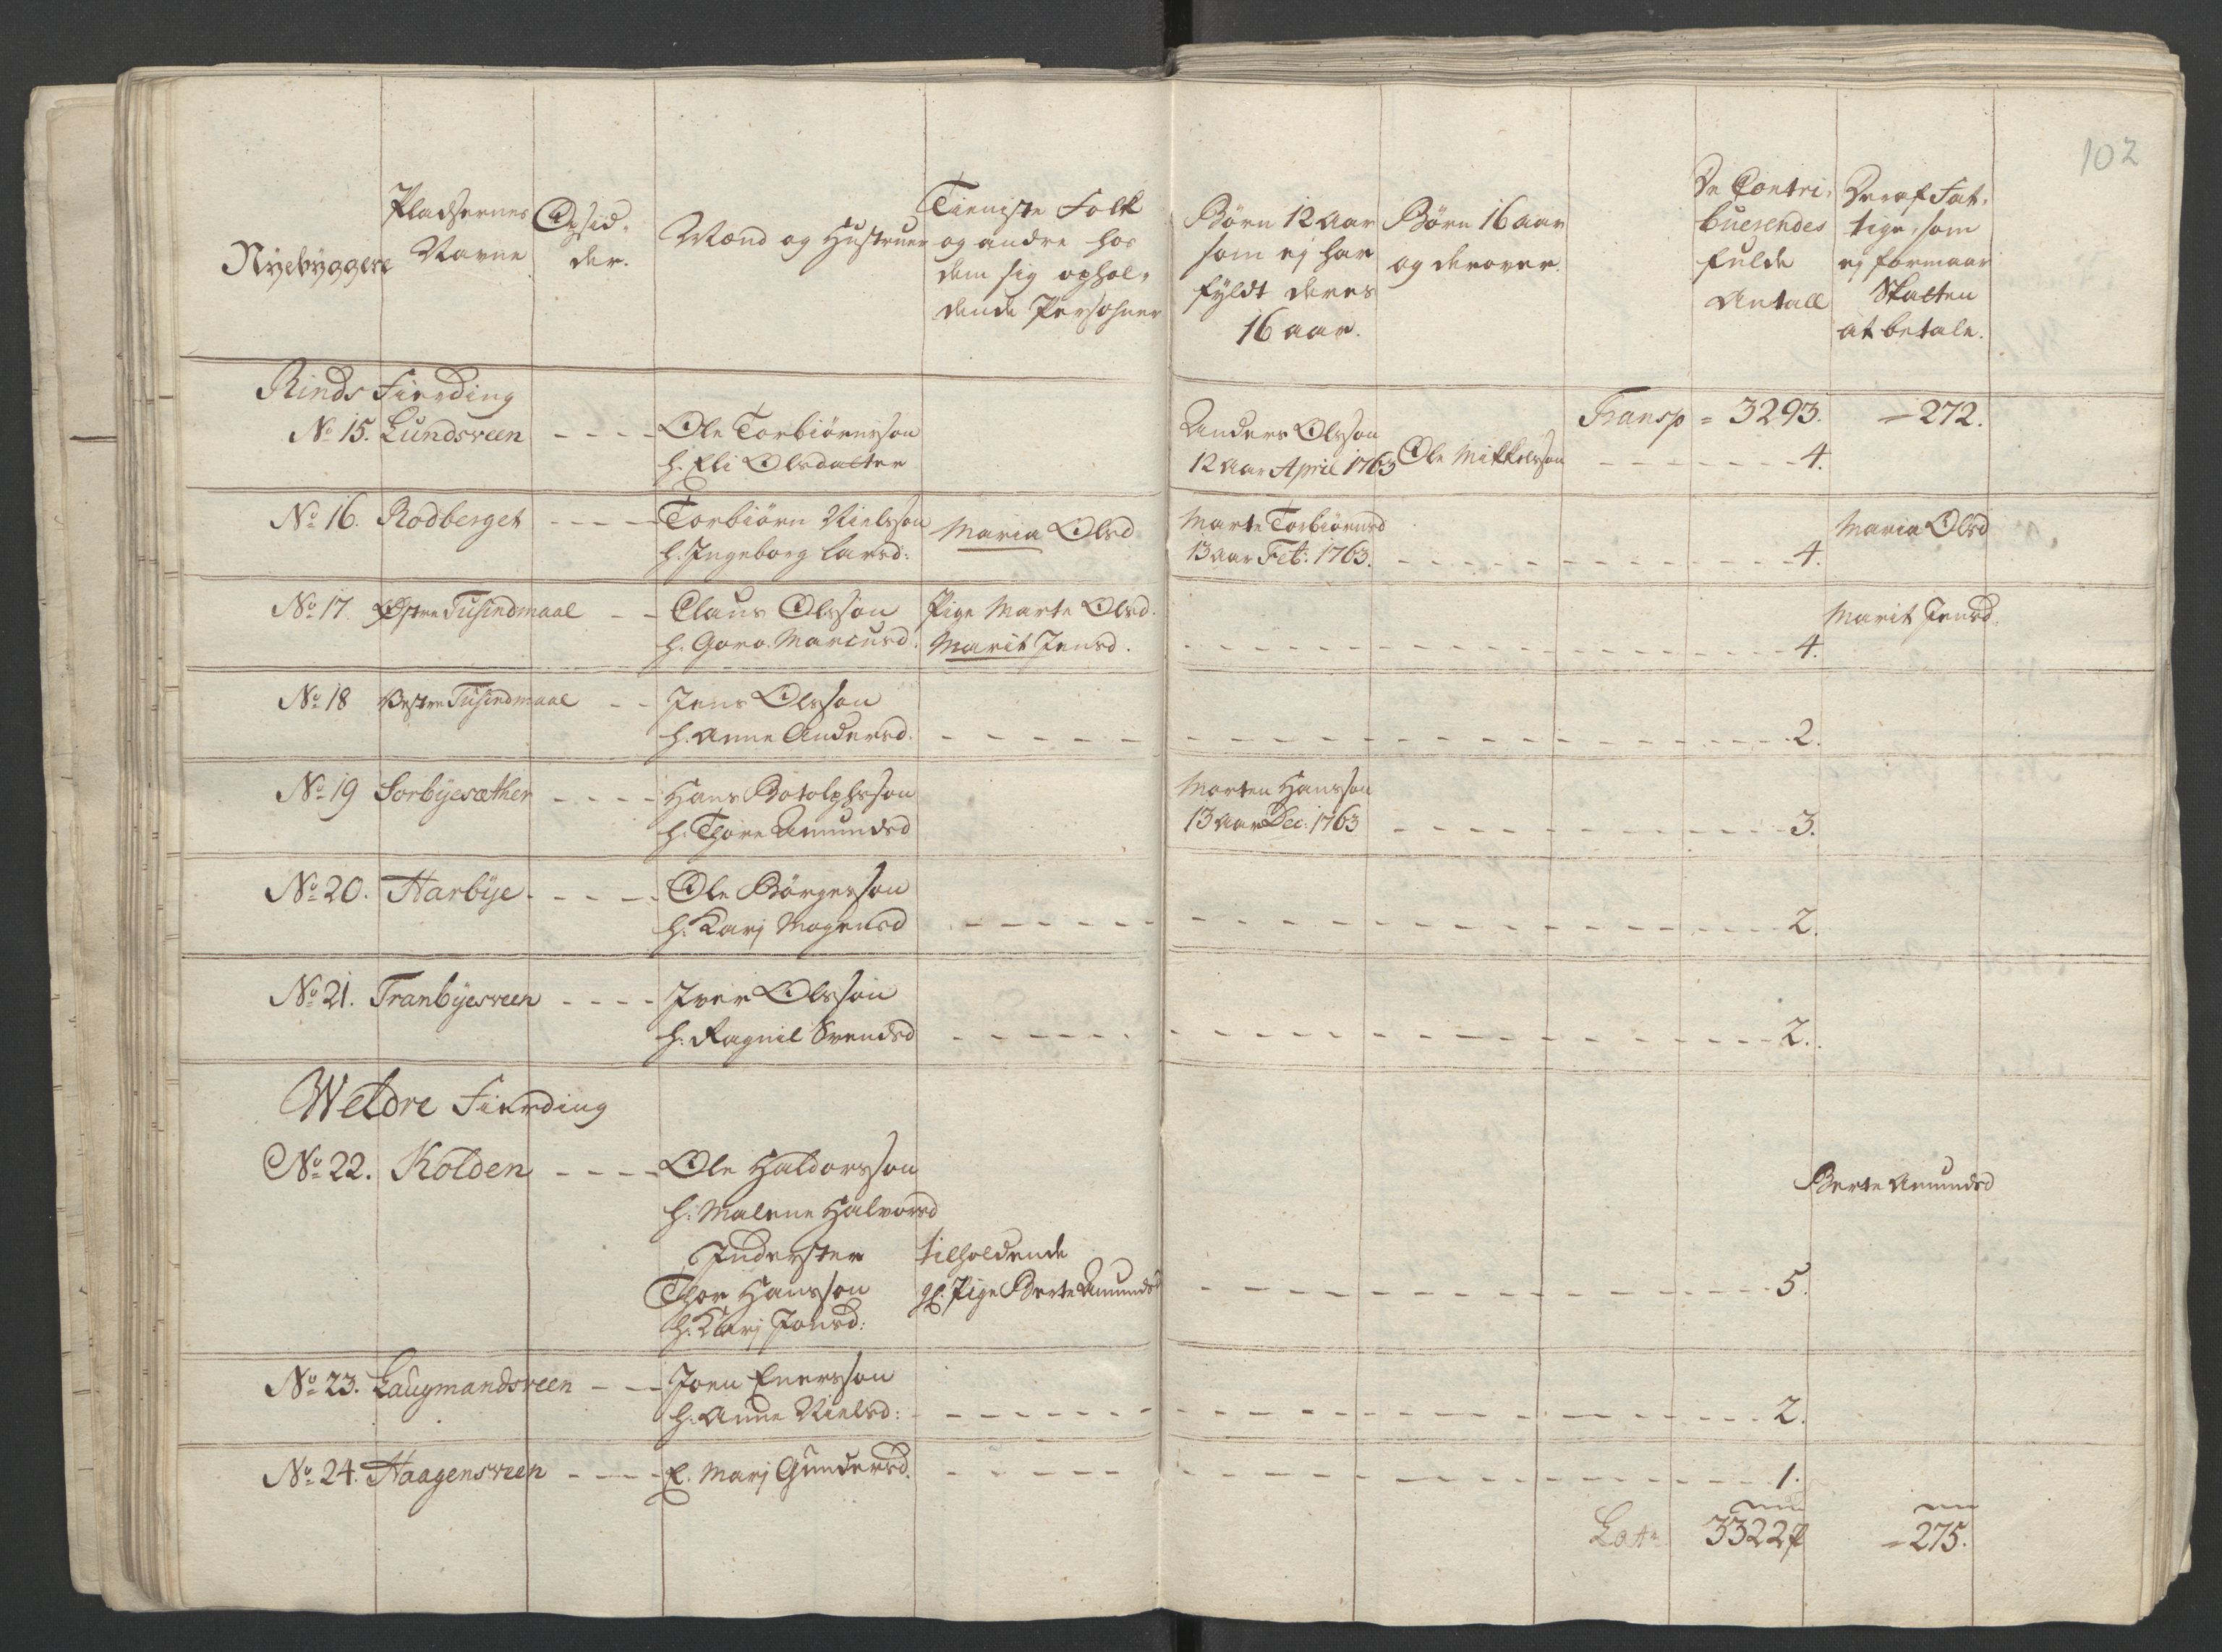 102
Nÿebÿggere
Pladsernes
Navne
Opsid-
der.
Mænd og Hustruer
Tieniste Folk
og andre hos
dem sig ophol-
dende Persohner
Börn 12 aar
som ej har
fÿldt deres
16 aar.
Börn 16 aar
og derover.
De Contri-
buerendes
fulde
Antall
Deraf Fat-
tige, som
ej formaar
Skatten
at betale.
Rinds Fierding
Transp = 3293. = 272.
No 15. Lundsveen - - - - Ole Torbiörnsson
h. Eli Olsdatter
Anders Olsson
12 aar April 1763 Ole Mikkelsson - - - - - - - 4.
No 16. Rodberget - - - - Torbiörn Nielsson
h. Ingeborg Larsd:
Maria Olsd
Marte Torbiörnsd
13 aar Feb: 1763. - - - - - - - - - - 4.
Maria Olsd
No 17 Østre Tusindmaal - - Claus Olsson Pige Marte Olsd.
h. Goro Marcusd. Marit Jensd. - - - - - - - - - - 4.
Marit Jensd.
No 18 Vestre Tusindmaal - - Jens Olsson
h. Anne Andersd. - - - - - - - - - - 2.
No 19 Sorbÿesæther - - - - Hans Botolphsson
h. Thore Amundsd
Morten Hansson
13 aar Dec: 1763 - - - - - - - - - - 3.
No 20. Harbÿe - - - - Ole Börgersson
h. Karj Mogensd - - - - - - - - - - 2.
No 21. Tranbÿesveen - - - - Iver Olsson
h. Ragnil Svendsd - - - - - - - - - - 2.
Weldre Fierding
No 22. Kolden - - - - Ole Haldorsson
h: Malene Halvorsd
Berte Amundsd
Inderster tilholdende
Thor Hansson Pige Berte Amundsd - - - - - - - - - - 5.
h: Karj Jonsd:
No 23. Laugmandsveen - - - Joen Enersson
h: Anne Nielsd: - - - - - - - - - - 2.
No 24. Haagensveen - - - - E. Marj Gundersd. - - - - - - - - - - 1.
Lats 3322 = 275.